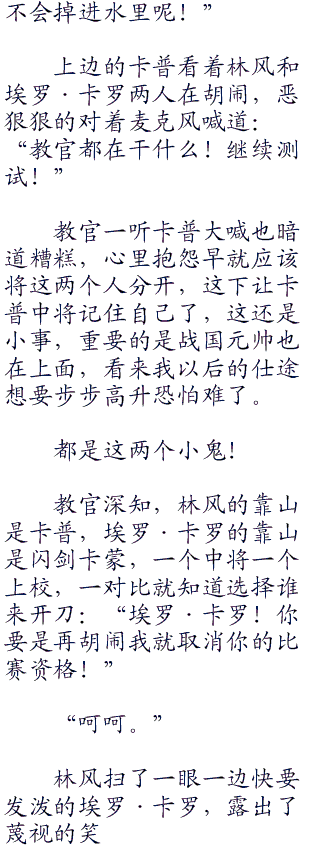 不会掉进水里呢！”
上边的卡普看着林风和
埃罗·卡罗两人在胡闹，恶
狠狠的对着麦克风喊道：
“教官都在干什么！继续测
试！”
教官一听卡普大喊也暗
道糟糕，心里抱怨早就应该
将这两个人分开，这下让卡
普中将记住自己了，这还是
小事，重要的是战国元帅也
在上面，看来我以后的仕途
想要步步高升恐怕难了。
都是这两个小鬼！
教官深知，林风的靠山
是卡普，埃罗·卡罗的靠山
是闪剑卡蒙，一个中将一个
上校，一对比就知道选择谁
来开刀：“埃罗·卡罗！你
要是再胡闹我就取消你的比
赛资格！”
“呵呵。”
林风扫了一眼一边快要
发泼的埃罗·卡罗，露出了
蔑视的笑